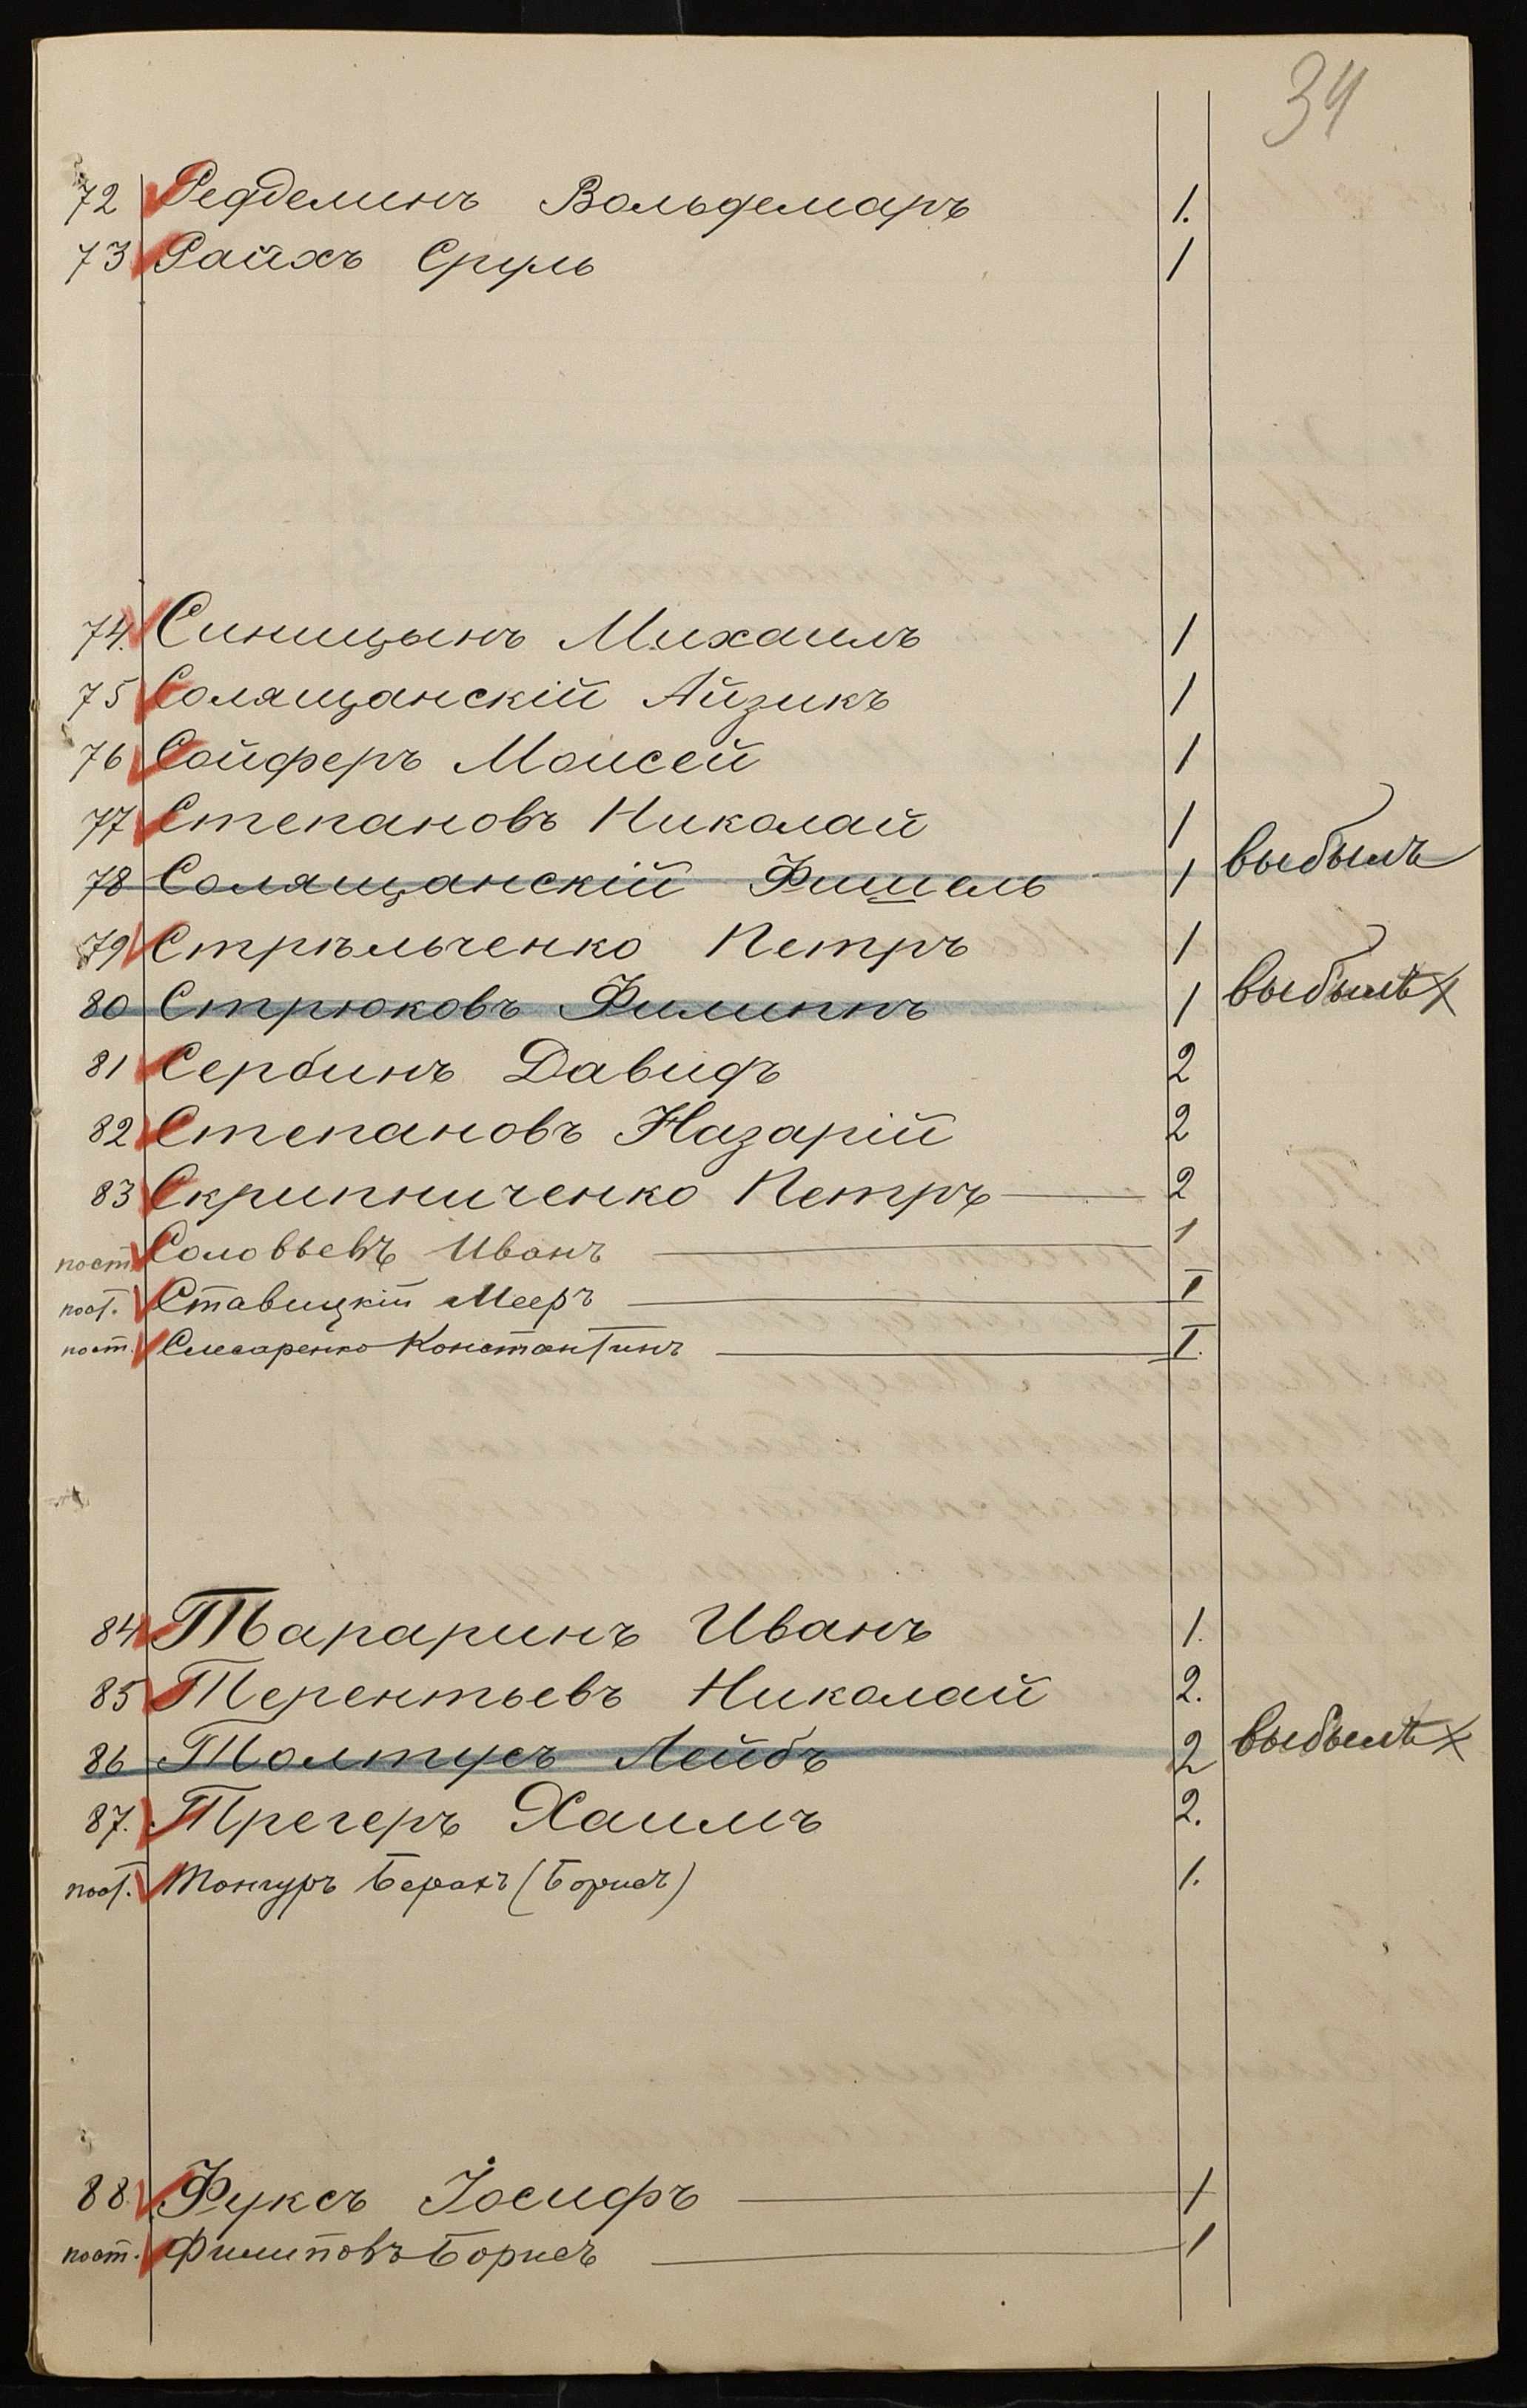 34
72 Рефделинъ Вольдемаръ 1.
73 Райхъ Сруль 1
74. Синицынъ Михаилъ 1
75 Солящанскій Айзикъ 1
76 Сойферъ Моисей 1
77 Степановъ Николай 1
78 Солящанскій Фишель 1 выбылъ
79 Стрѣльченко Петръ 1
80 Стрюковъ Филиппъ 1 выбылъ
81 Сербинъ Давидъ 2
82 Степановъ Назарій 2
83 Скрипниченко Петръ 2
пост. Соловьевъ Иванъ 1
пост. Ставицкій Мееръ I
пост. Слесаренко Константинъ I.
84 Тараринъ Иванъ 1.
85 Терентьевъ Николай 2.
86 Толтусъ Лейбъ 2 выбылъ
87. Трегеръ Хаимъ 2.
пост. Тонгуръ (Борисъ) 1.
88. Фуксъ Іосифъ 1
пост. Филиповъ Борисъ 1